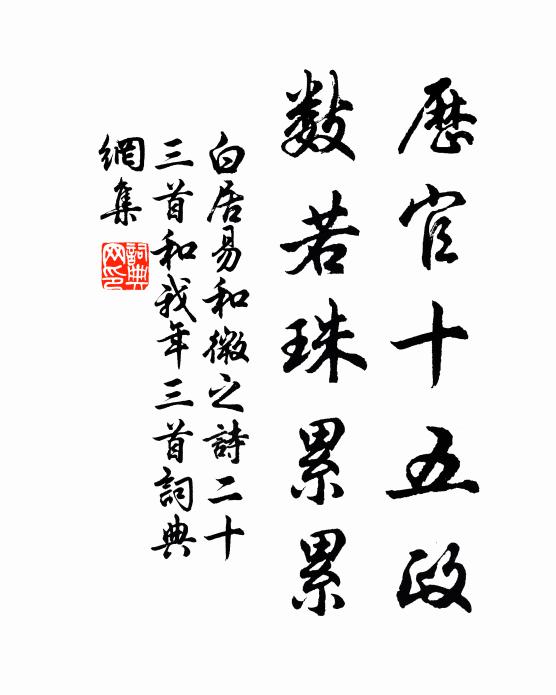 歷官十五政
數若珠累累
白居易和微之詩二十
三首和我年三首詞典
網集
詞典網印